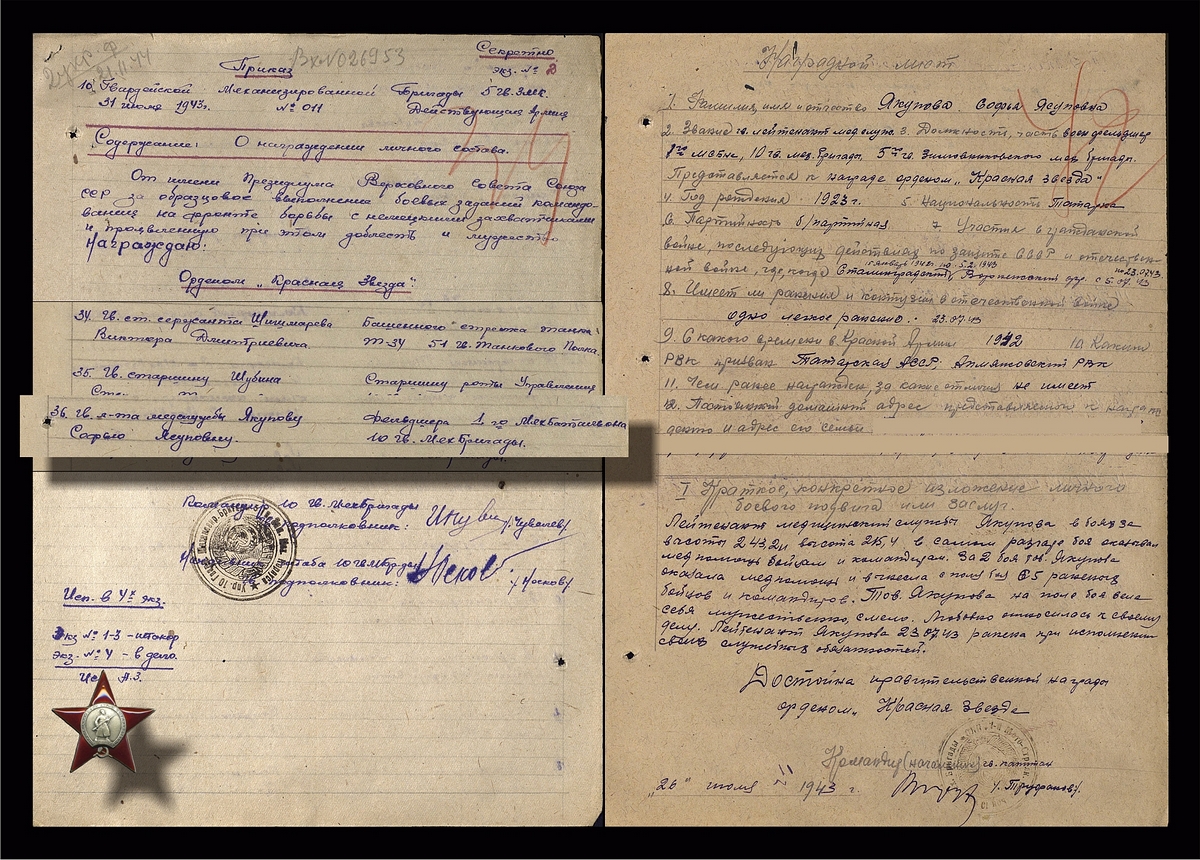 Вх№026953
Секретно
экз. № 2
Приказ
10 Гвардейской Механизированной Бригады 5 гв. Змк.
31 июля 1943г. № 011 Действующая Армия
Содержание: О награждении личного состава.
От имени Президиума Верховного Совета Союза
ССР за образцовое выполнение боевых заданий командо-
вания на фронте борьбы с немецкими захватчиками
и проявленную при этом доблесть и мужество
Награждаю:
Орденом „Красная Звезда"
34. Гв. ст. сержанта Шишмарева Башенного стрелка танка
Виктора Дмитриевича. Т-34 51 гв. Танкового Полка.
35. Гв. старшину Шубина Старшину роты Управления
36. гв. л-та медслужбы Якупову Фельдшера 1го Мехбатальона
Софью Ясуповну. 10 гв. МехБригады.
Командир 10 гв. Мехбригады
подполковник: /Чувалев/
Начальник штаба 10 гв Мбриды
подполковник: /Носков/
Исп. в 4х экз.
Экз № 1-3 - штакор
экз. № 4 - в дело.
Наградной лист
1. Фамилия, имя и отчество Якупова Софья Ясуповна
2. Звание гв. лейтенант мед служ. 3. Должность, часть воен фельдшер
1го мсбтн, 10 гв. мех. бригады, 5го гв. Зимовниковского мех бригады.
Представляется к награде орденом „Красная Звезда"
4. Год рождения 1923г. 5. Национальность Татарка
6. Партийность б/партийная 7 Участие в гражданской
войне, последующих действиях по защите СССР и отечествен-
ной войне, где, когда Сталинградский, Воронежский с 5.07.43 по 23.07.43
8. Имеет ли ранения и контузии в отечественной войне
одно легкое ранение. 23.07.43
9. С какого времени в Красной Армии 1942 10 Каким
РВК призван Татарская АССР, РВК
11. Чем ранее награжден за какие отличия не имеет
12. Постоянный домашний адрес представляемого к награж
дению и адрес его семьи
I Краткое, конкретное изложение личного
боевого подвига или заслуг.
Лейтенант медицинской службы Якупова в боях за
высоты 243,2 и высота 215,4 в самом разгаре боя оказывала
мед помощь бойцам и командирам. За 2 боя тов. Якупова
оказала мед помощь и вынесла с поля боя раненых
бойцов и командиров. Тов. Якупова на поле боя вела
себя мужественно, смело. Любовно относилась к своему
делу. Лейтенант Якупова 23.07.43 ранена при исполнении
своих служебных обязанностей.
Достойна правительственной награды
орденом „Красная Звезда
Командир (начальник) гв. капитан
/Труфанов/.
„26" июля 1943 г.